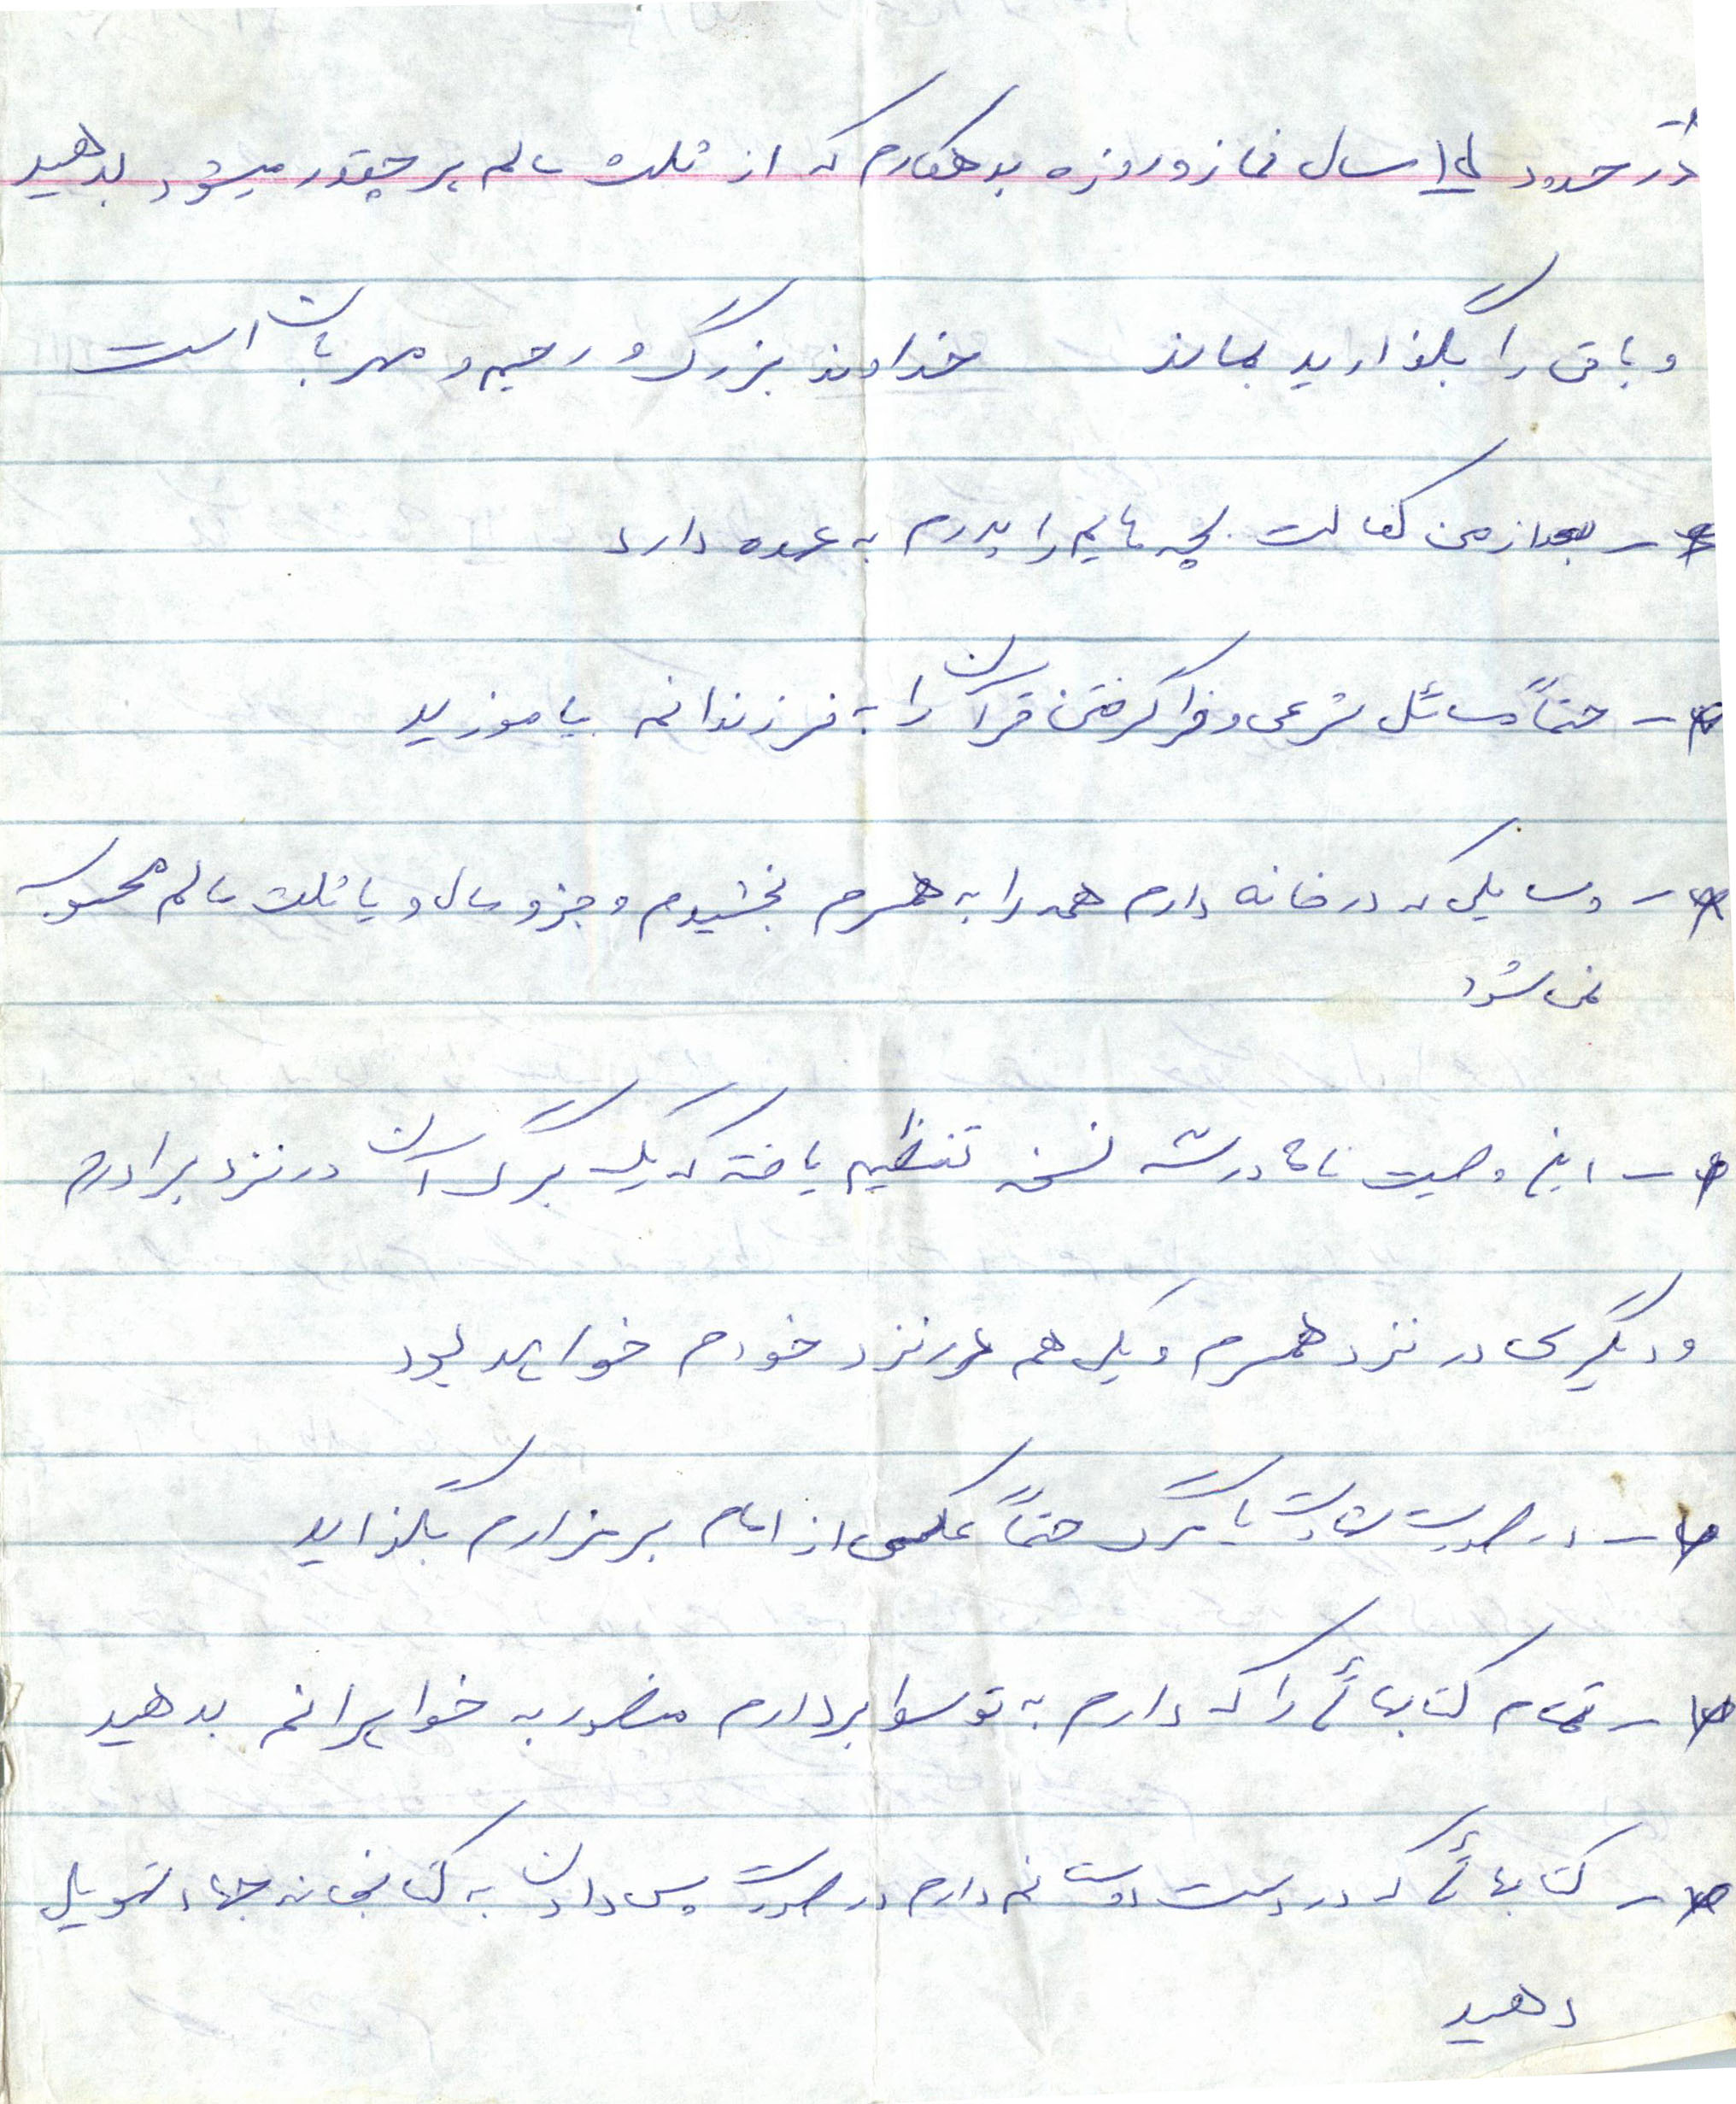 در حدود سال نماز و روزه بدهکارم که از ثلث مالم هر چقدر میشود بدهید
و باقی را بگذارید بماند خداوند بزرگ و رحیم و مهربان است
- بعد از من کفالت بچه هایم را پدرم به عهده دارد
- حتماً مسائل شرعی و فرا گرفتن قرآن را به فرزندانم بیاموزید
- وسایلی که در خانه دارم همه را به همسرم بخشیدم و جزو مال و یا ثلث مالم محسوب
نمی شود
- این وصیت نامه در سه نسخه تنظیم یافته که یک برگ آن در نزد برادرم
و دیگری در نزد همسرم و یکی هم در نزد خودم خواهد بود
- در صورت شهادت یا مرگ حتماً عکسی از امام بر مزارم بگذارید
- تمام کتابهائی را که دارم به توسط برادرم منصور به خواهرانم بدهید
- کتابهائی که در دست دوستانم دارم در صورت پس دادن به کتابخانه جهاد تحویل
دهید